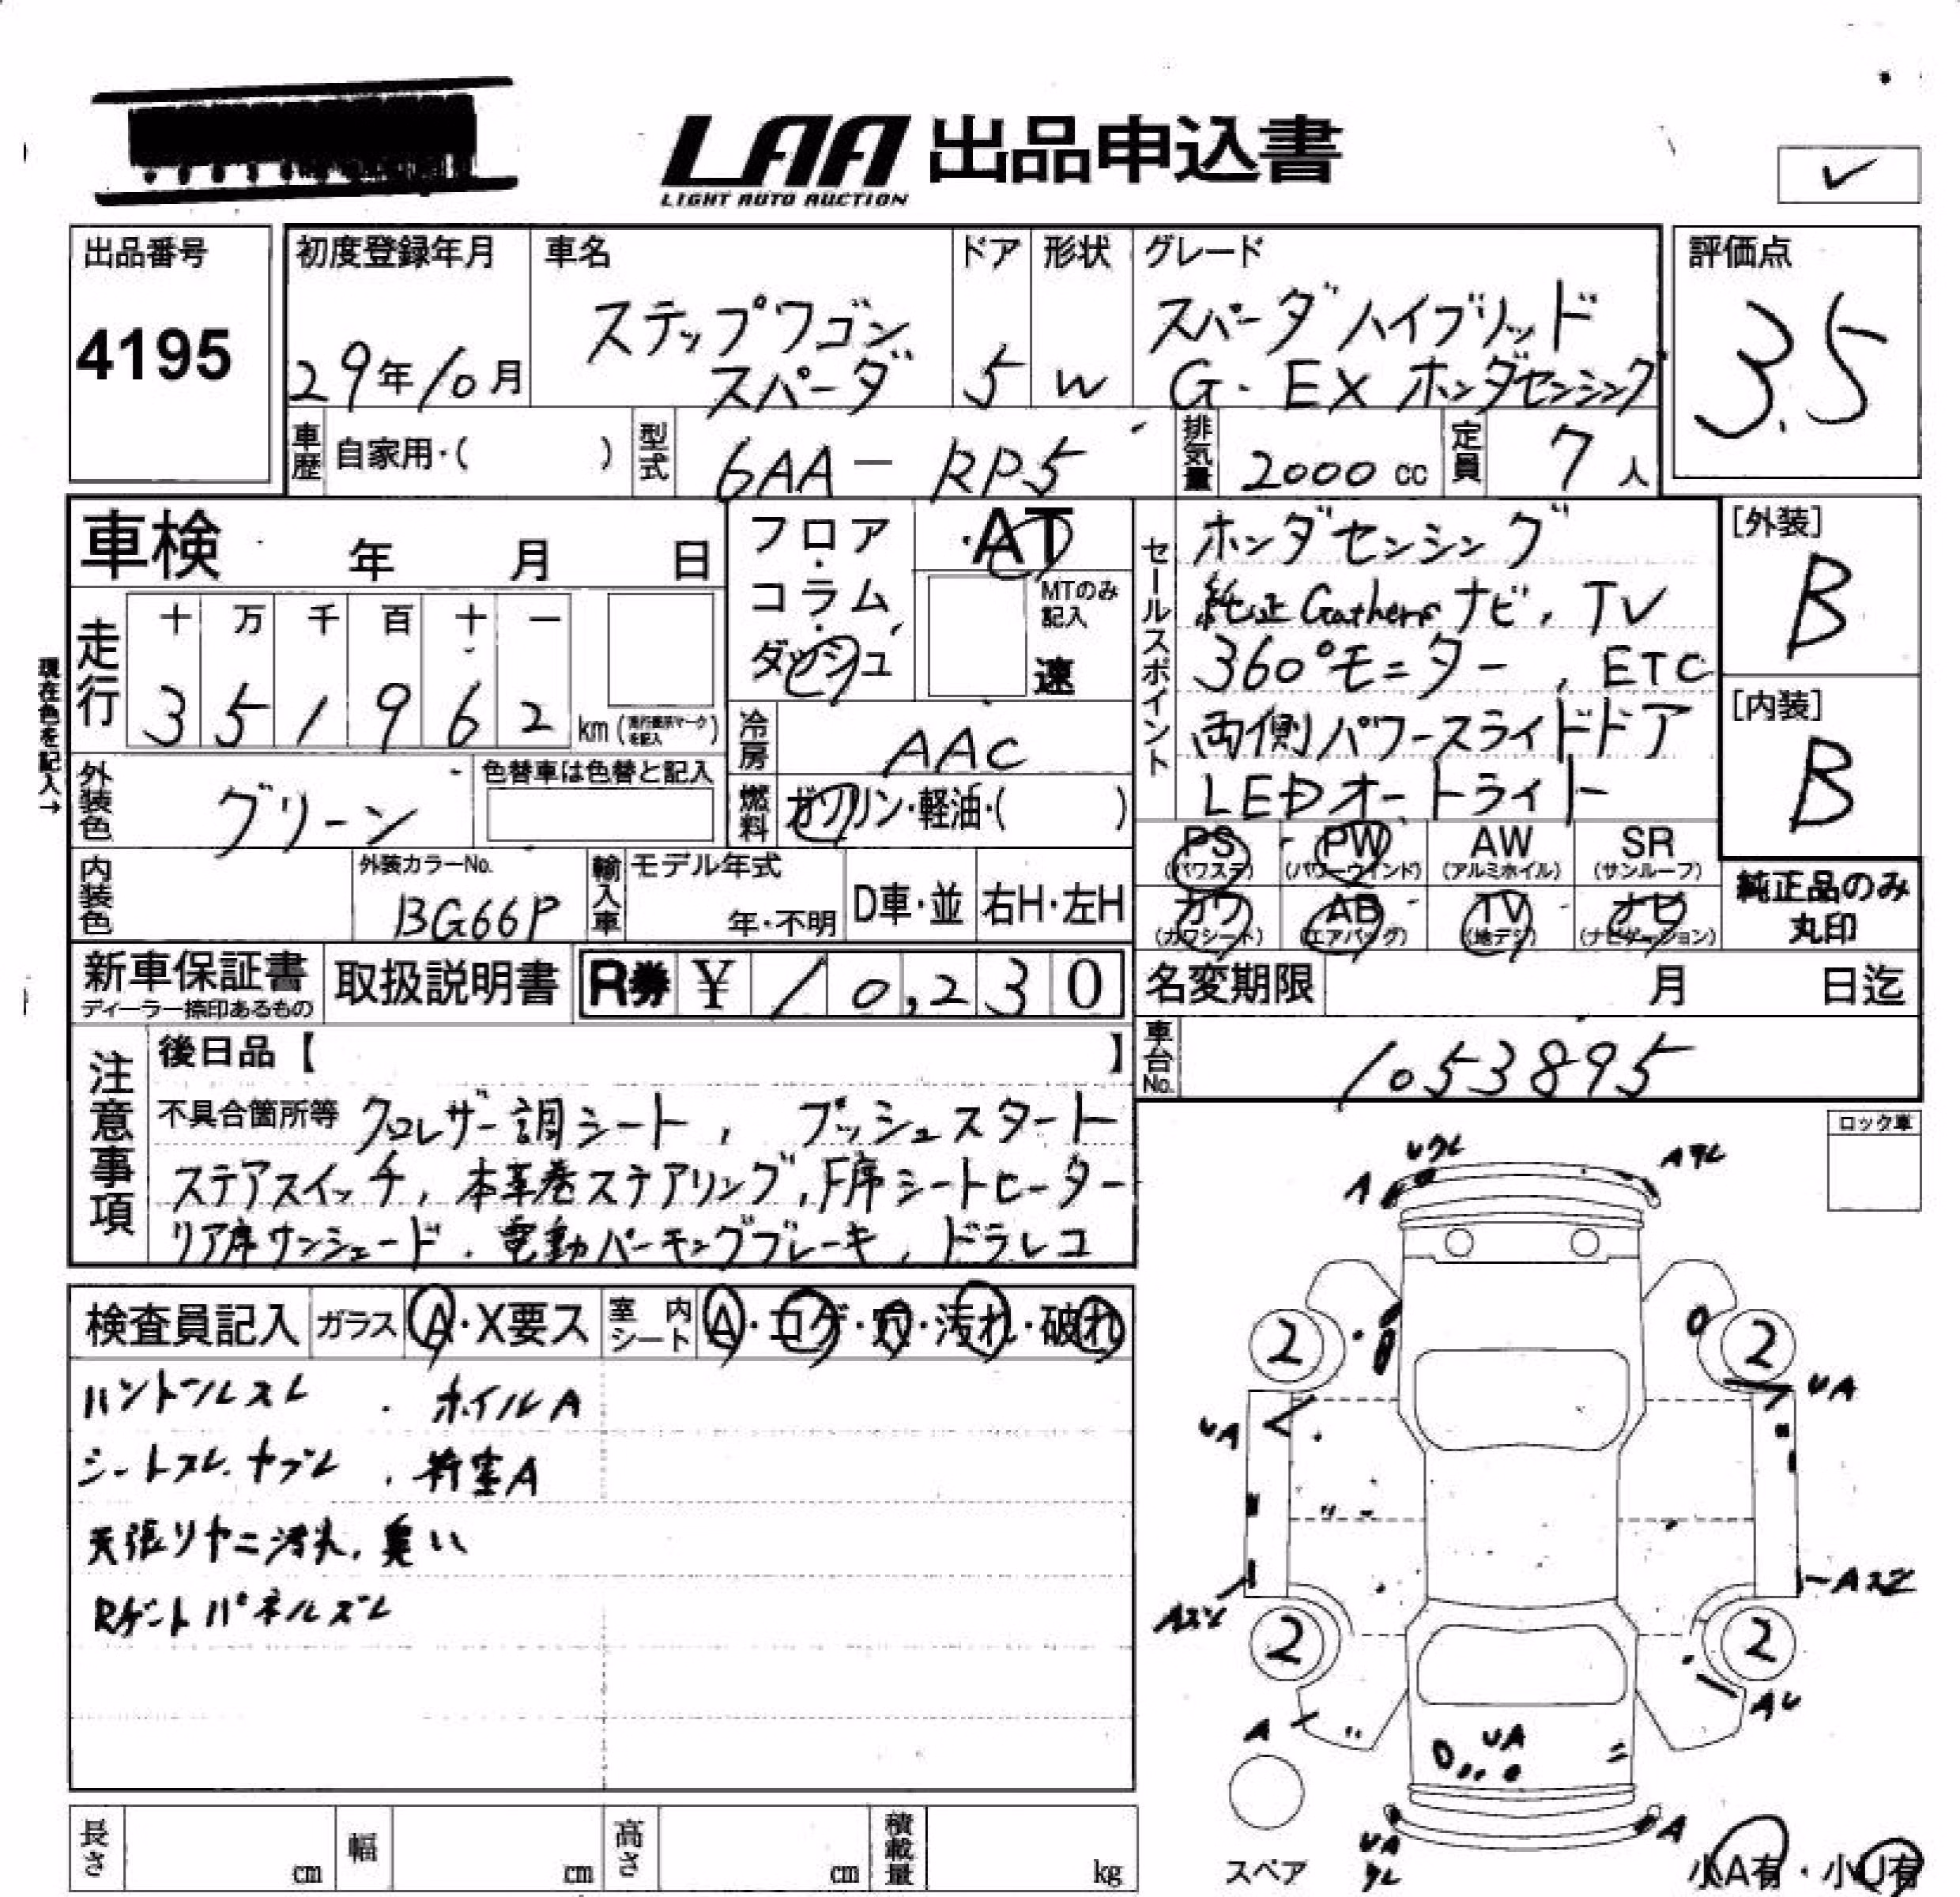 LAA 出品申込書
LIGHT AUTO AUCTION
✓
出品番号
4195
初度登録年月
29年10月
車名
ステップワゴン
スパーダ
ドア
5
形状
W
グレード
スパーダハイブリッド
G・EX ホンダセンシング
評価点
3.5
車歴 自家用・( )
型式 6AA-RP5
排気量 2000 cc
定員 7 人
車検 年 月 日
フロア・コラム・ダッシュ
・AT
MTのみ記入
速
セールスポイント
ホンダセンシング
純正Gathersナビ, TV
360°モニター, ETC
両側パワースライドドア
LEDオートライト
[外装]
B
[内装]
B
現在色を記入→
走行
十 万 千 百 十 一
3 5 1 9 6 2 km
冷房 AAC
外装色 グリーン
色替車は色替と記入
燃料 ガソリン・軽油・( )
PS (パワステ)
PW (パワーウインド)
AW (アルミホイル)
SR (サンルーフ)
カワ (カワシート)
AB (エアバッグ)
TV (地デジ)
ナビ (ナビゲーション)
純正品のみ
丸印
内装色
外装カラーNo.
BG66P
輸入車
モデル年式
年・不明
D車・並
右H・左H
新車保証書
ディーラー捺印あるもの
取扱説明書
R券 ¥ 10,230
名変期限 月 日迄
車台No. 1053895
注意事項
後日品【 】
不具合箇所等 クロレザー調シート, プッシュスタート
ステアスイッチ, 本革巻ステアリング, F席シートヒーター
リア席サンシェード, 電動パーキングブレーキ, ドラレコ
ロック車
検査員記入
ガラス A・X要ス
室内シート A・コゲ・穴・汚れ・破れ
ハンドルスレ ・ ホイルA
シートスレ、ヤブレ ・ 荷室A
天張リヤニ汚れ, 臭い
Rゲートパネルズレ
A
2
2
UA
UA
2
2
AU
A
UA
UA
A
スペア
小A有・小U有
長さ cm
幅 cm
高さ cm
積載量 kg